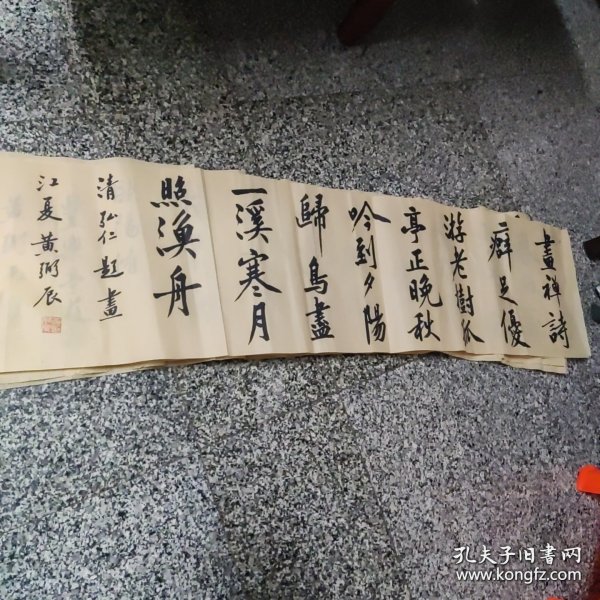 畫禅詩
癖足優
游老樹孤
亭正晚秋
吟到夕陽
歸鳥盡
一溪寒月
照漁舟
清弘仁題畫
江夏黄弼辰
孔夫子旧書网
www.kongfz.com